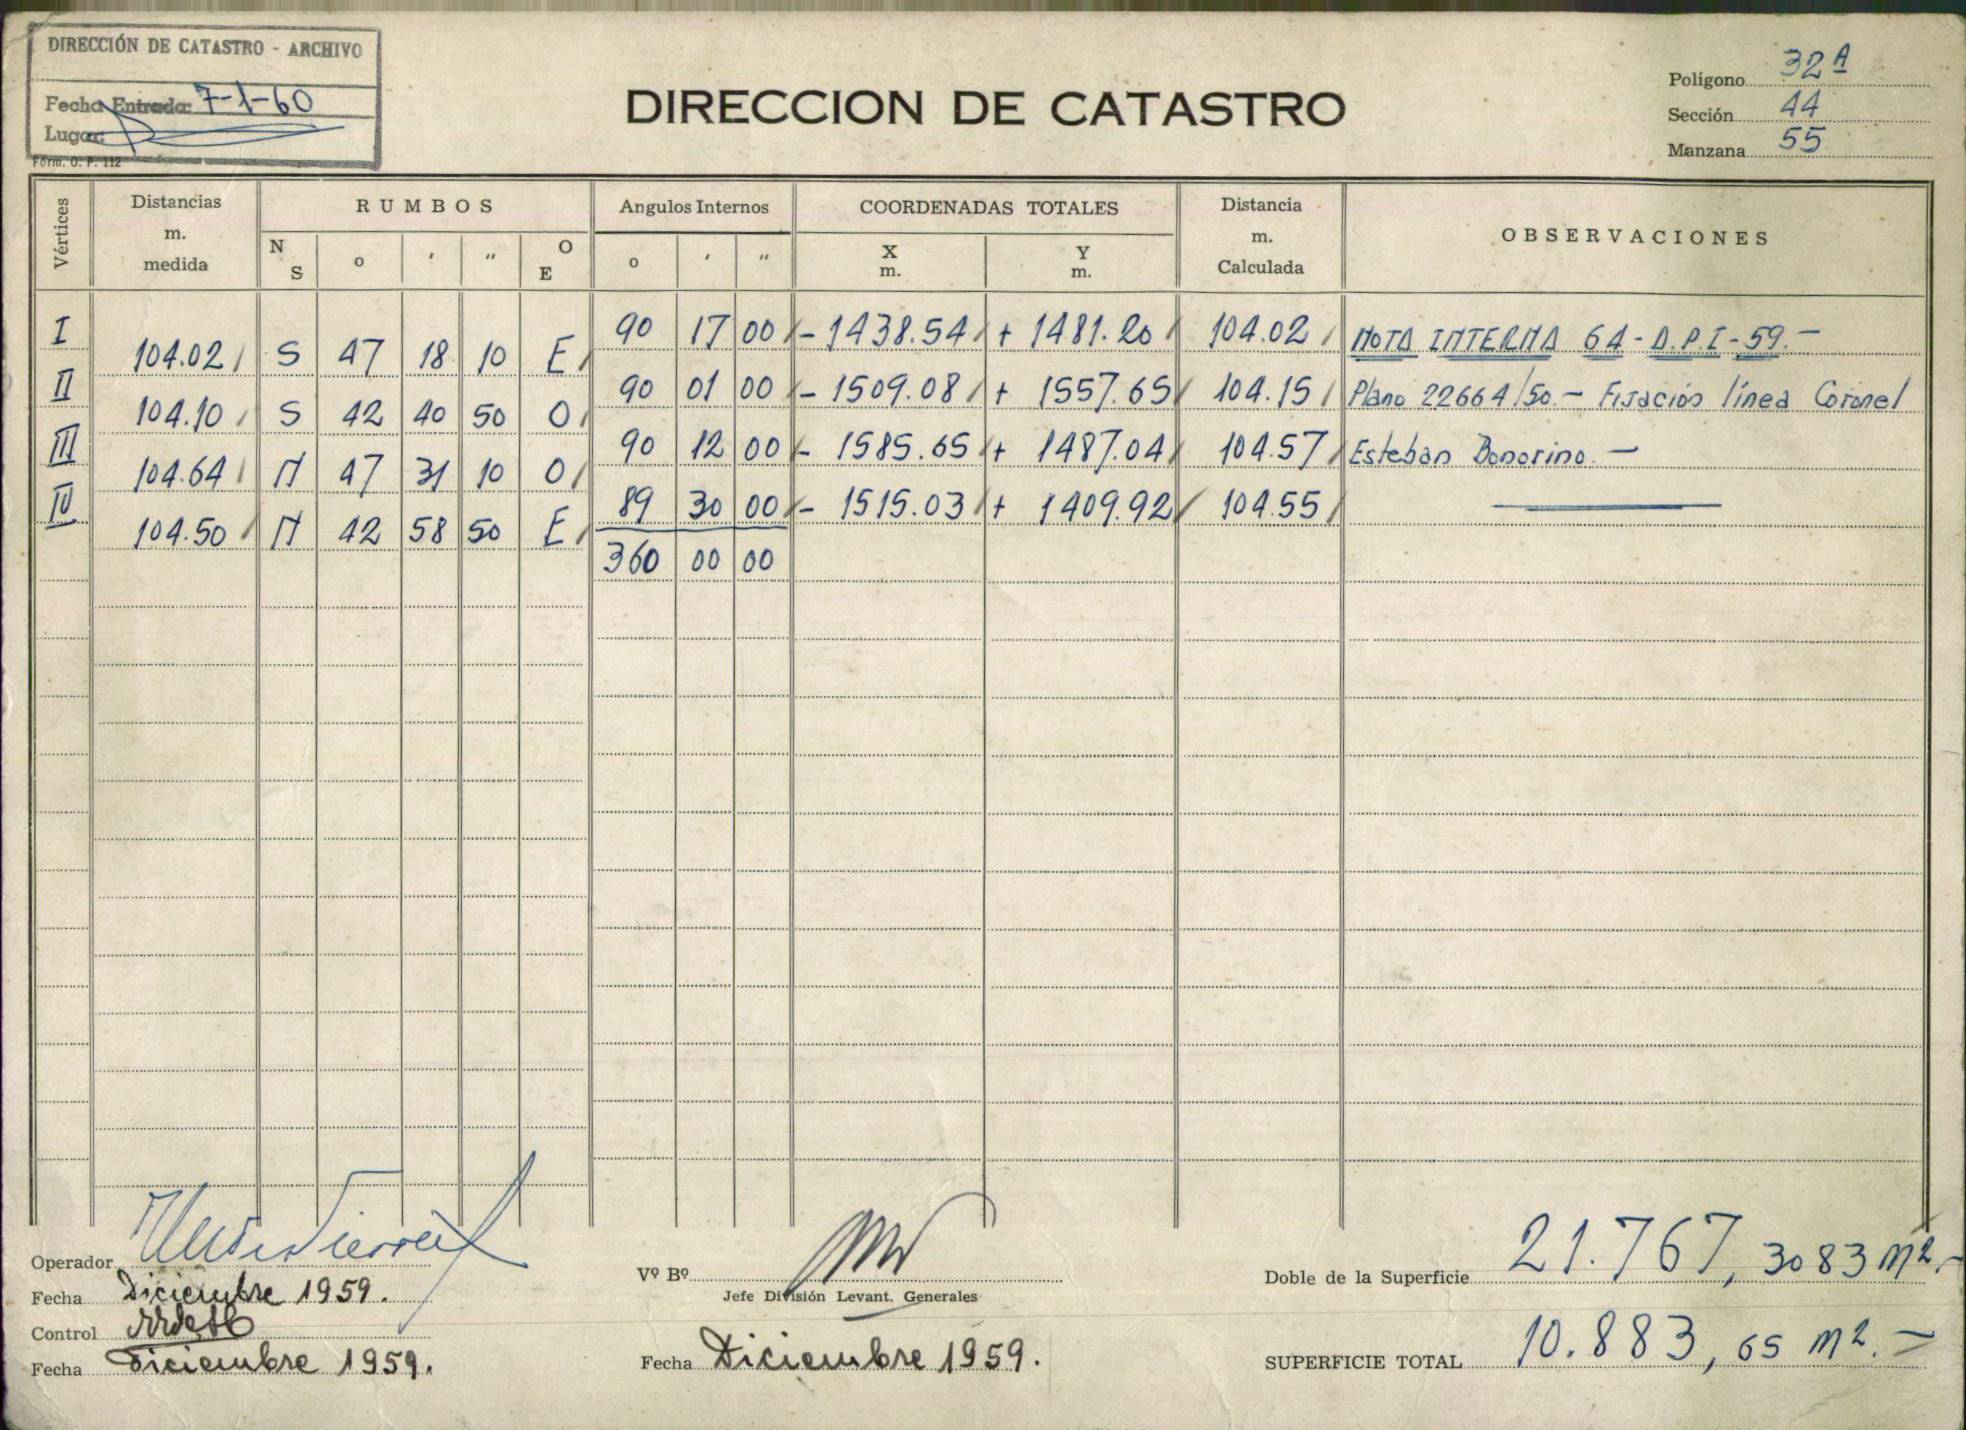 DIRECCIÓN DE CATASTRO - ARCHIVO
Fecha Entrada: 7-1-60
Lugar:
Form. O. P. 112
DIRECCION DE CATASTRO
Polígono 32A
Sección 44
Manzana 55
Vértices
Distancias m. medida
RUMBOS
Angulos Internos
COORDENADAS TOTALES
Distancia m. Calculada
OBSERVACIONES
N S o ' " O E
o ' "
X m. Y m.
I 90 17 00 - 1438.54 + 1481.20 104.02 NOTA INTERNA 64 - D.P.I - 59.-
104.02 S 47 18 10 E
II 90 01 00 - 1509.08 + 1557.65 104.15 Plano 22664/50.- Fijación línea Coronel
104.10 S 42 40 50 O
III 90 12 00 - 1585.65 + 1487.04 104.57 Esteban Bonorino.-
104.64 N 47 31 10 O
IV 89 30 00 - 1515.03 + 1409.92 104.55
104.50 N 42 58 50 E
360 00 00
Operador
Fecha Diciembre 1959.
Control
Fecha Diciembre 1959.
Vº Bº
Jefe División Levant. Generales
Fecha Diciembre 1959.
Doble de la Superficie 21.767,3083 m2.-
SUPERFICIE TOTAL 10.883,65 m2.-